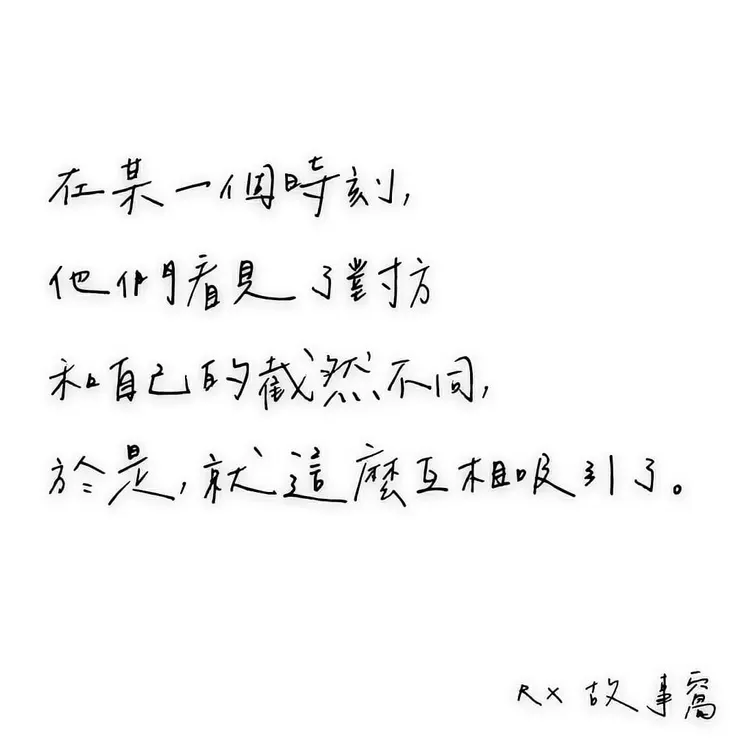 在某一個時刻,
他們看見了對方
和自己的截然不同,
於是,就這麼互相吸引了。
RX 故事窩